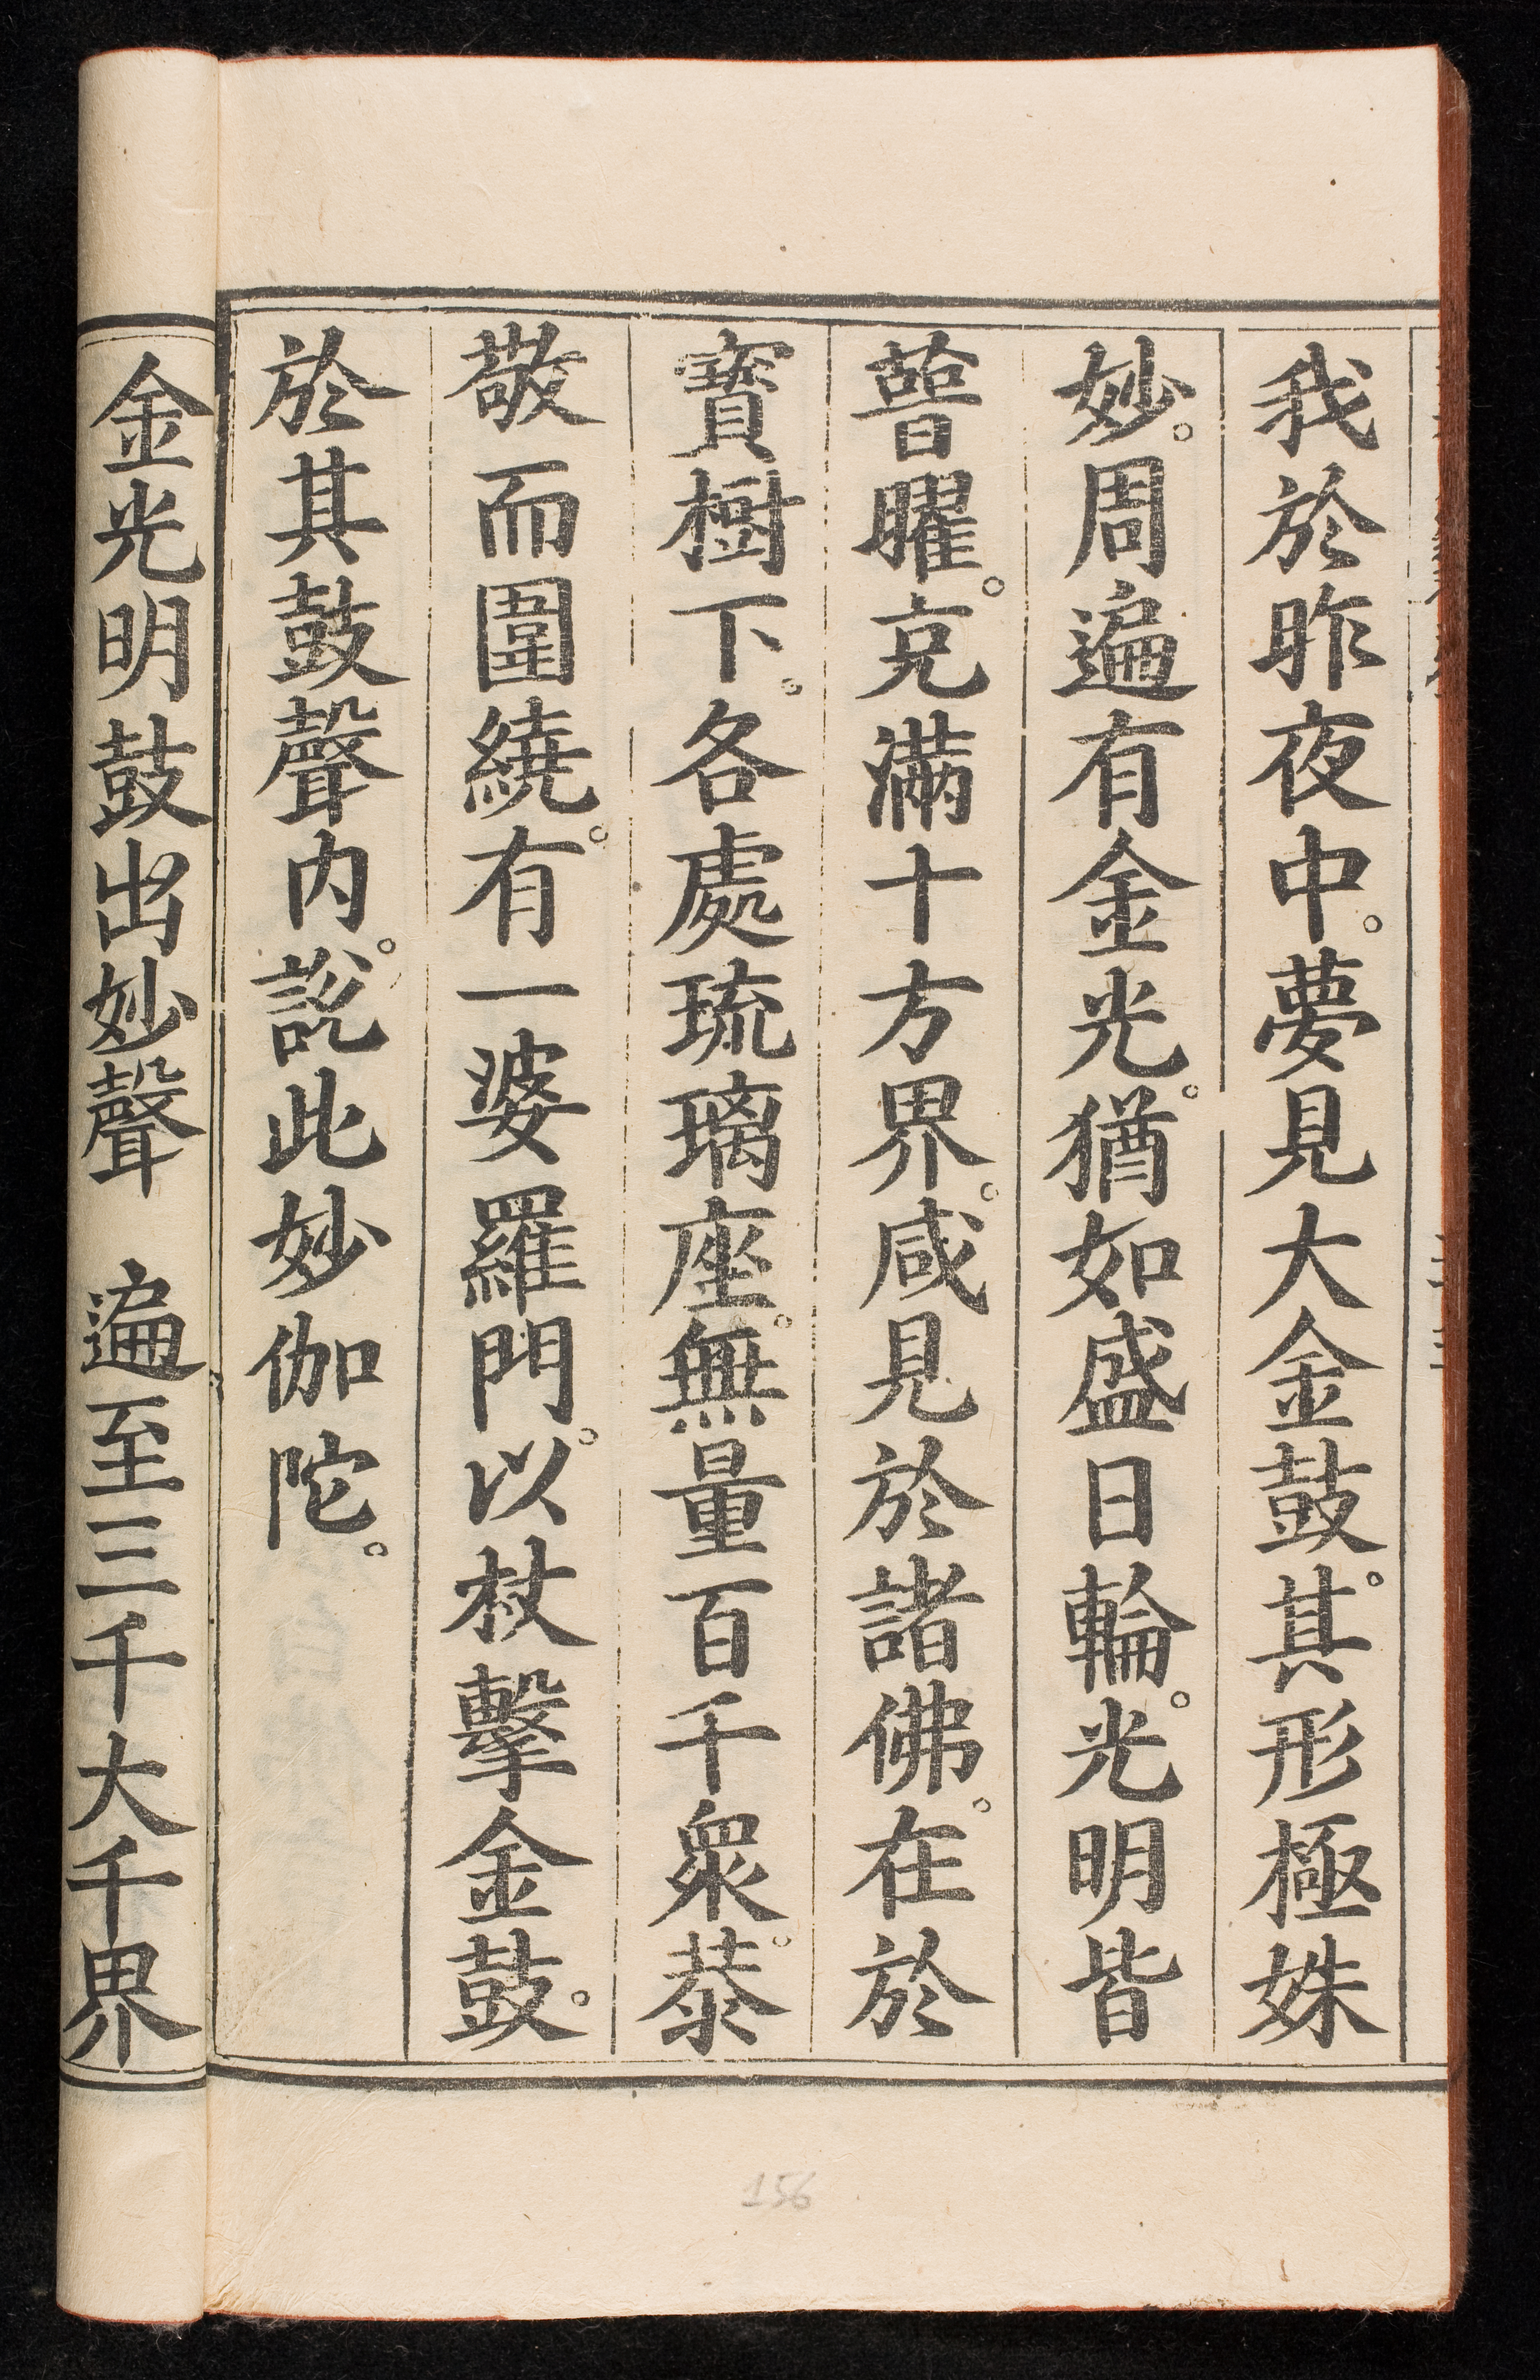 我於昨夜中。夢見大金鼓。其形極姝
妙。周遍有金光。猶如盛日輪。光明皆
普曜。充滿十方界。咸見於諸佛。在於
寶樹下。各處琉璃座。無量百千眾。恭
敬而圍繞。有一婆羅門。以杖擊金鼓。
於其鼓聲內。說此妙伽陀。
金光明鼓出妙聲　遍至三千大千界
156